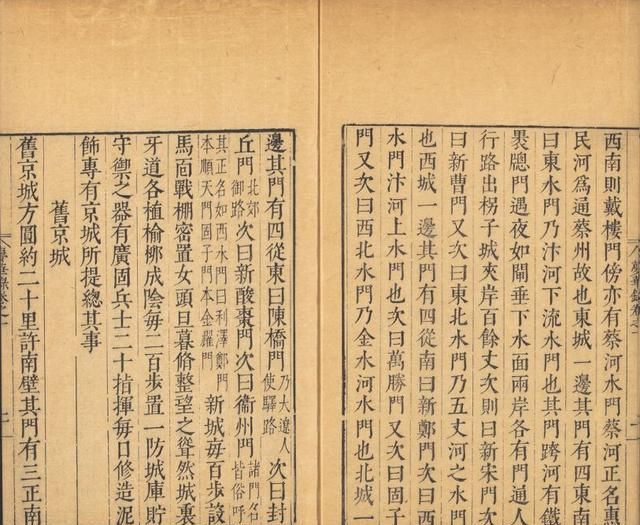 西南則戴樓門傍亦有蔡河水門蔡河正名惠
民河爲通蔡州故也東城一邊其門有四東南
曰東水門乃汴河下流水門也其門跨河有鐵
褁牕門遇夜如閘垂下水面兩岸各有門通人
行路出拐子城夾岸百餘丈次則曰新宋門次
曰新曹門又次曰東北水門乃五丈河之水門
也西城一邊其門有四從南曰新鄭門次曰西
水門汴河上水門也次曰萬勝門又次曰固子
門又次曰西北水門乃金水河水門也北城一
邊其門有四從東曰陳橋門乃大遼人使驛路次曰封
丘門北郊御路次曰新酸棗門次曰衞州門諸門名皆俗呼
其正名如西水門曰利澤鄭門本順天門固子門本金耀門新城每百步設
馬面戰棚密置女頭旦暮脩整望之聳然城裏
牙道各植榆栁成陰每二百步置一防城庫貯
守禦之器有廣固兵士二十指揮每日修造泥
飾專有京城所提總其事
舊京城
舊京城方圓約二十里許南壁其門有三正南